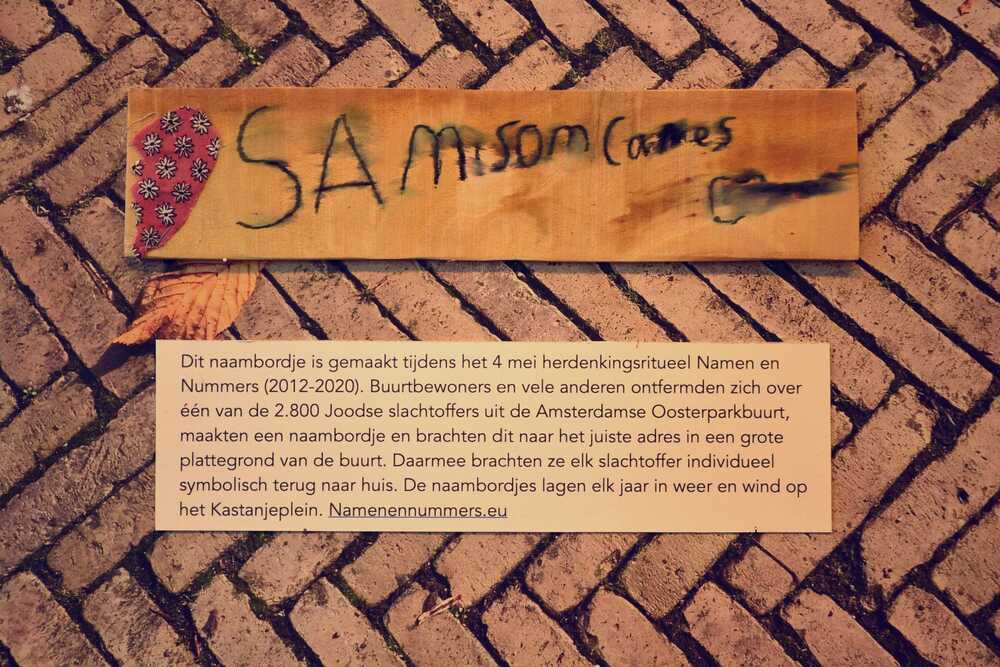 SAmsom Cames
Dit naambordje is gemaakt tijdens het 4 mei herdenkingsritueel Namen en
Nummers (2012-2020). Buurtbewoners en vele anderen ontfermden zich over
één van de 2.800 Joodse slachtoffers uit de Amsterdamse Oosterparkbuurt,
maakten een naambordje en brachten dit naar het juiste adres in een grote
plattegrond van de buurt. Daarmee brachten ze elk slachtoffer individueel
symbolisch terug naar huis. De naambordjes lagen elk jaar in weer en wind op
het Kastanjeplein. Namenennummers.eu